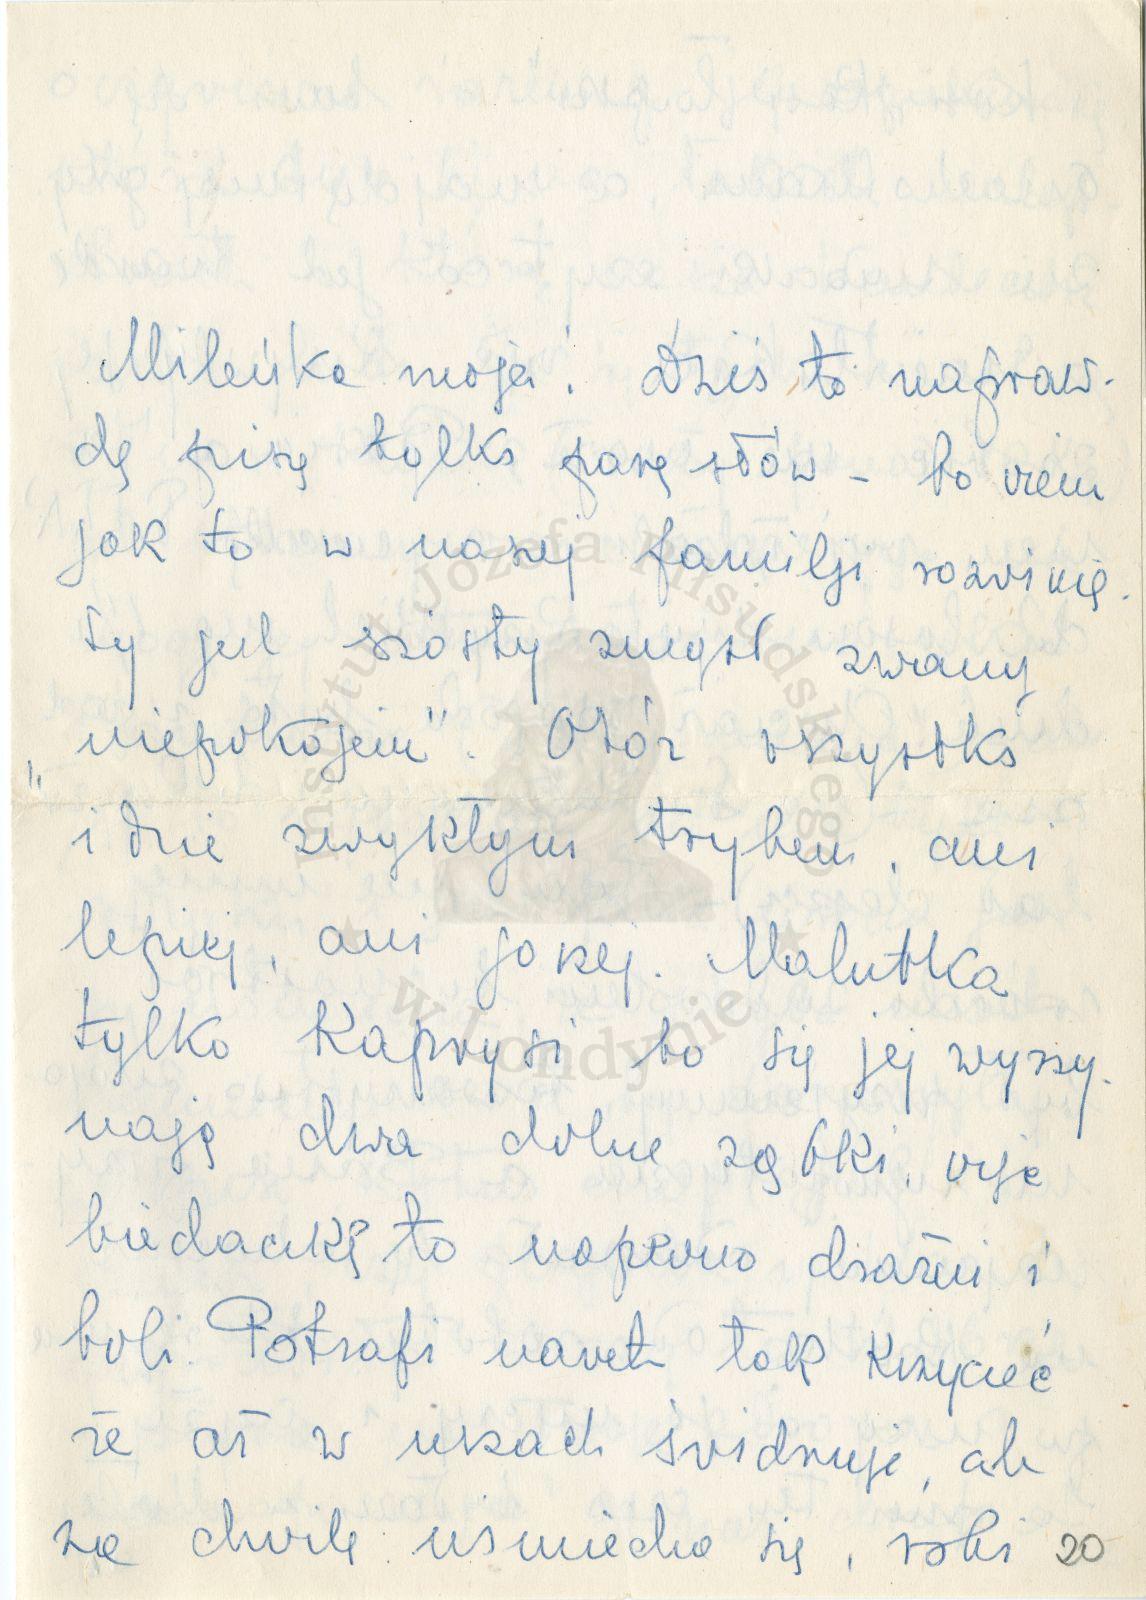 Mileńka moja! Dziś to napraw-
dę piszę tylko parę słów – bo wiem
jak to w naszej familji rozwinię-
ty jest szósty zmysł zwany
„niepokojem". Otóż wszystko
idzie zwykłym trybem, ani
lepiej, ani gorzej. Malutka
tylko kaprysi bo się jej wyrzy-
nają dwa dolne ząbki, więc
biedaczkę to napewno drażni i
boli. Potrafi nawet tak krzyczeć
że aż w uszach świdruje, ale
za chwilę uśmiecha się, robi 20
Instytut Józefa Piłsudskiego
w Londynie